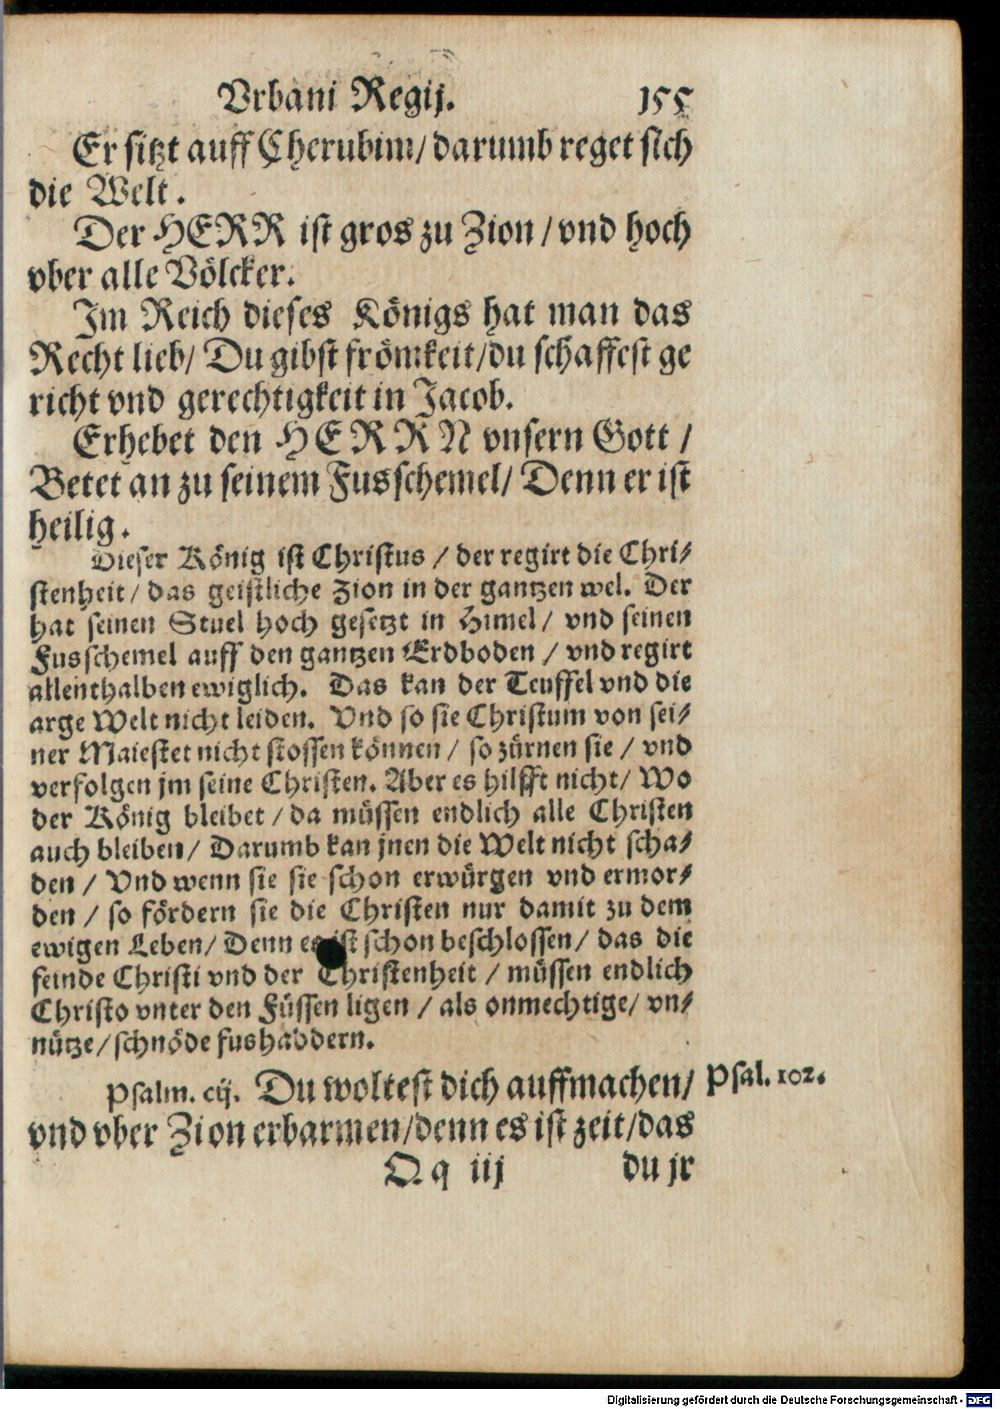 Vrbani Regij. 155
Er sitzt auff Cherubim/ darumb reget sich
die Welt.
Der HERR ist gros zu Zion / vnd hoch
vber alle Völcker.
Im Reich dieses Königs hat man das
Recht lieb/ Du gibst frömkeit/du schaffest ge
richt vnd gerechtigkeit in Jacob.
Erhebet den HERRN vnsern Gott /
Betet an zu seinem Fusschemel/ Denn er ist
heilig.
Dieser König ist Christus / der regirt die Chri-
stenheit / das geistliche Zion in der gantzen wel. Der
hat seinen Stuel hoch gesetzt in Himel/ vnd seinen
Fusschemel auff den gantzen Erdboden / vnd regirt
allenthalben ewiglich. Das kan der Teuffel vnd die
arge Welt nicht leiden. Vnd so sie Christum von sei-
ner Maiestet nicht stossen können / so zürnen sie / vnd
verfolgen jm seine Christen. Aber es hilfft nicht/ Wo
der König bleibet / da müssen endlich alle Christen
auch bleiben/ Darumb kan jnen die Welt nicht scha-
den / Vnd wenn sie sie schon erwürgen vnd ermor-
den / so fördern sie die Christen nur damit zu dem
ewigen Leben/ Denn es ist schon beschlossen/ das die
feinde Christi vnd der Christenheit / müssen endlich
Christo vnter den Füssen ligen / als onmechtige/ vn-
nütze/ schnöde fushaddern.
Psalm. cij. Du woltest dich auffmachen/ Psal. 102.
vnd vber Zion erbarmen/denn es ist zeit/das
Q q iij du jr
Digitalisierung gefördert durch die Deutsche Forschungsgemeinschaft - DFG